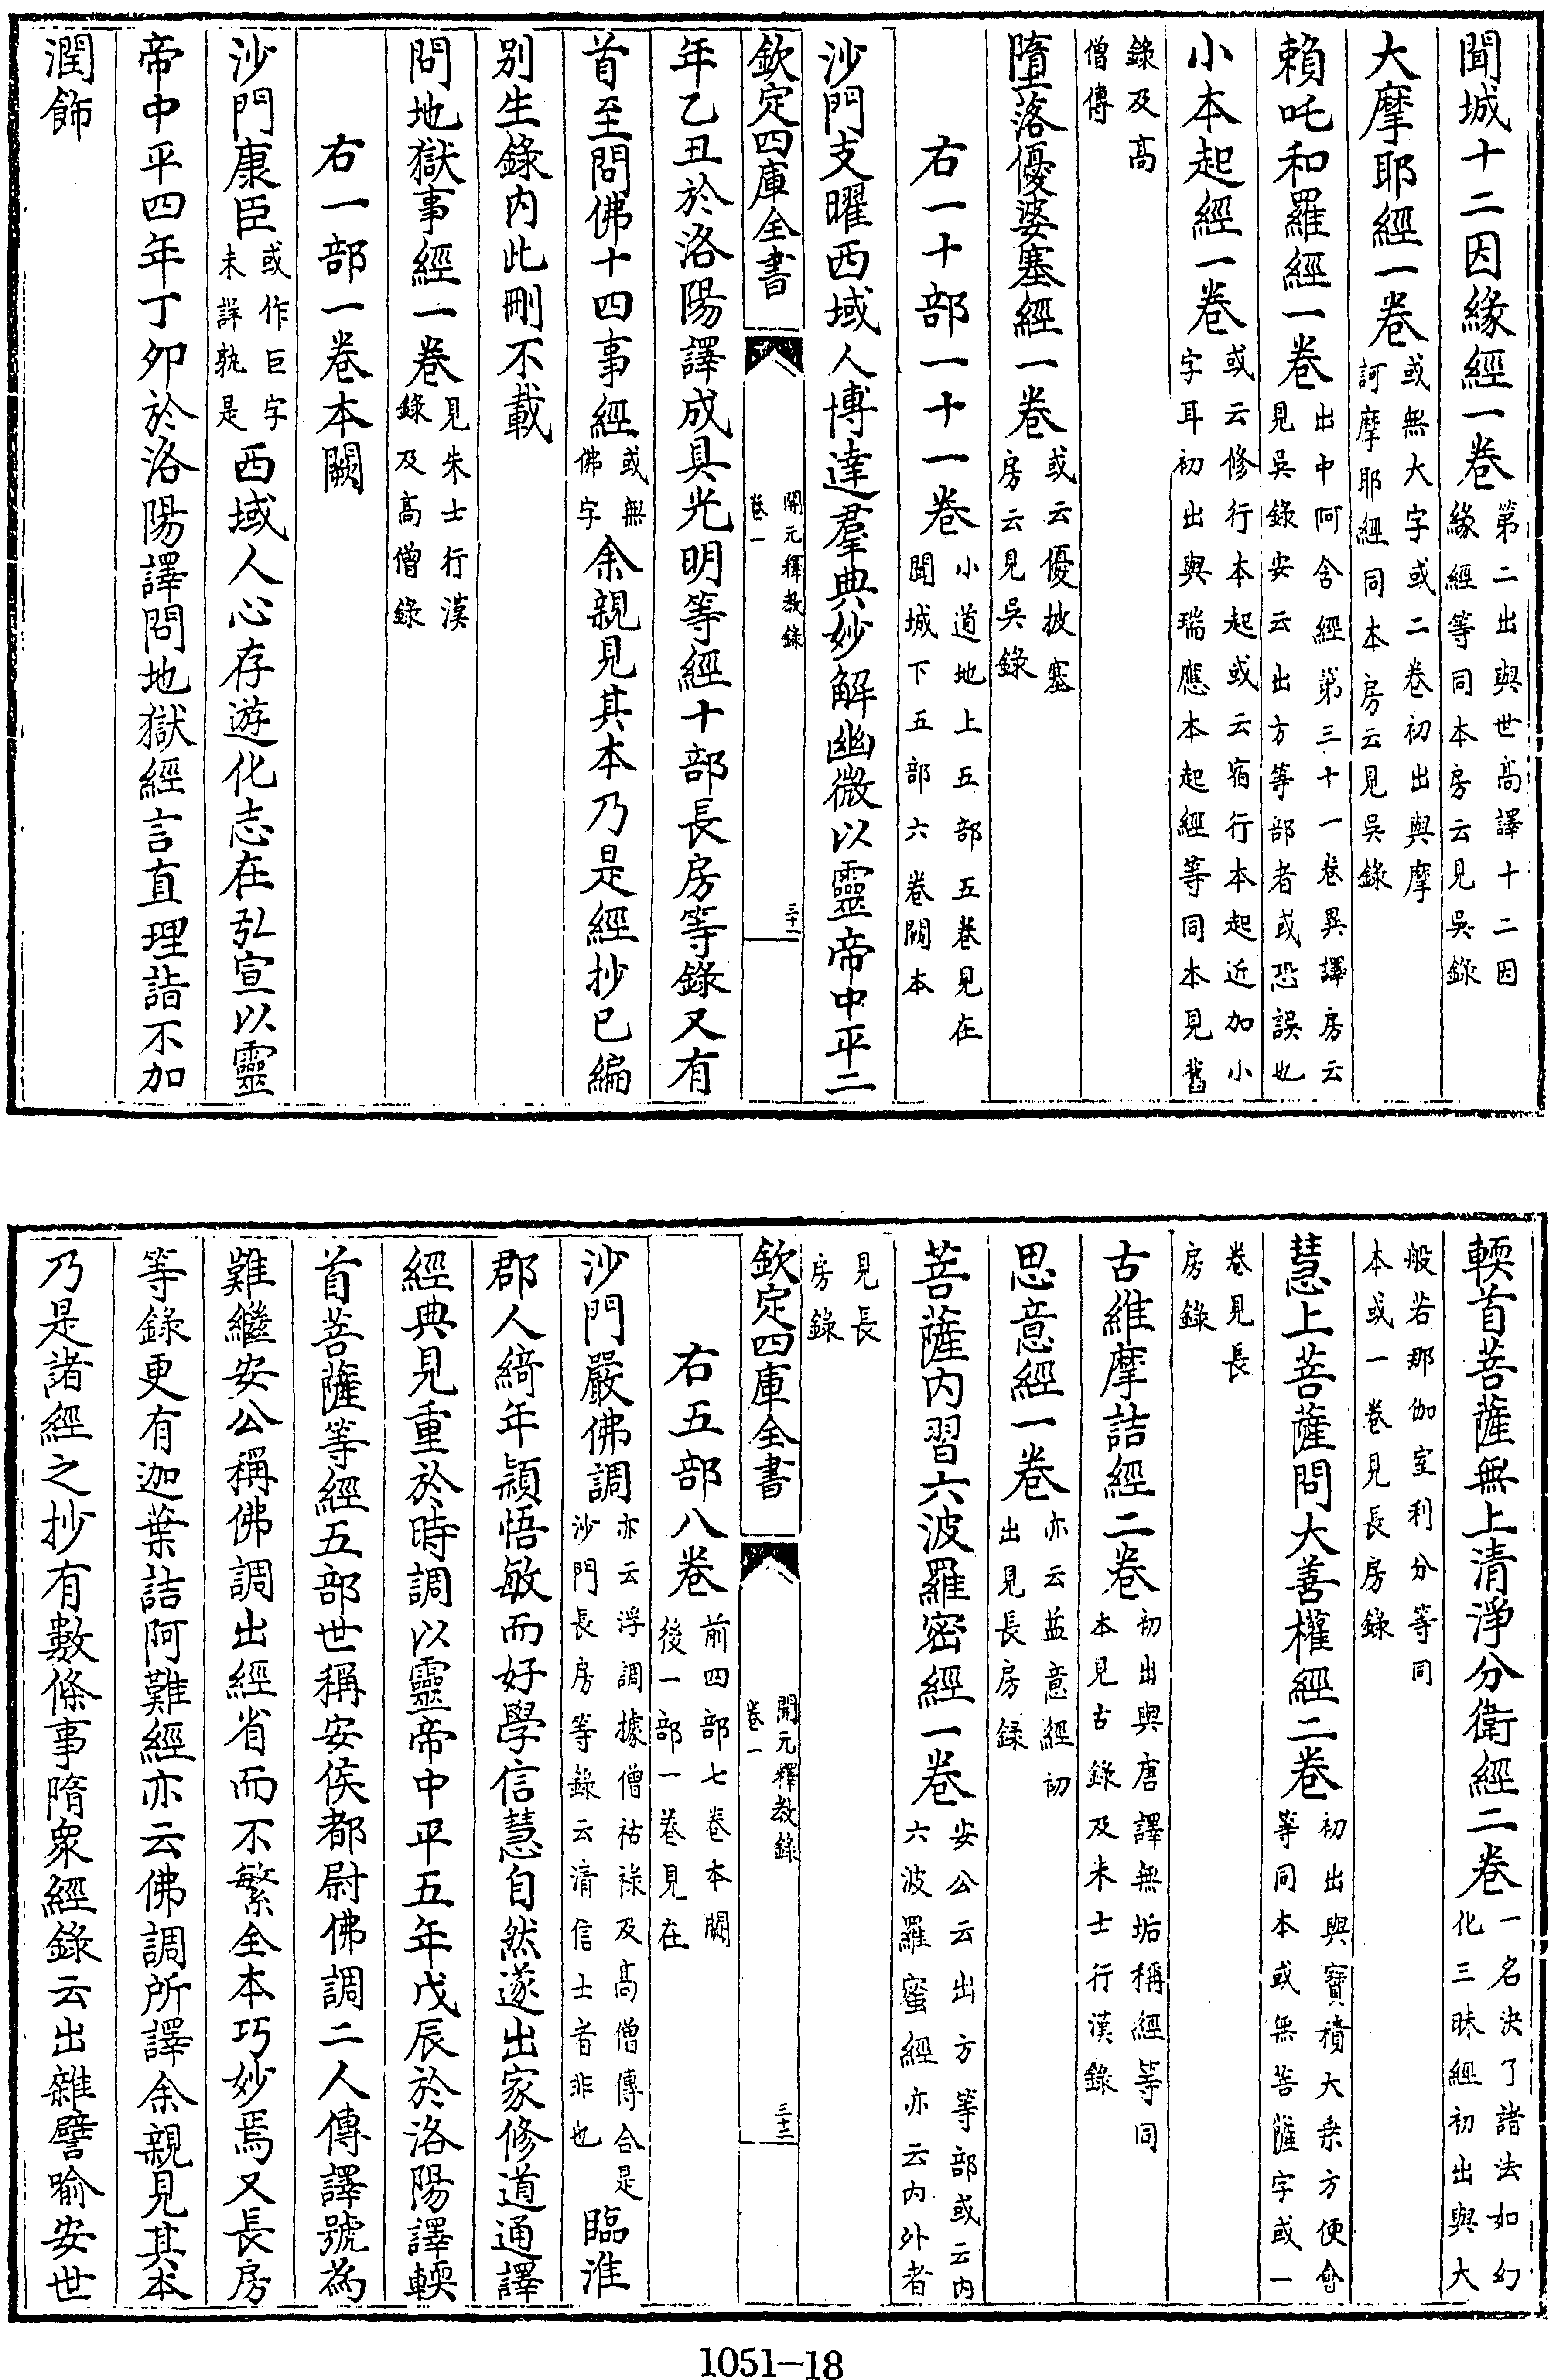 聞城十二因緣經一卷第二出與世高譯十二因緣經等同本房云見吳錄
大摩耶經一卷或無大字或二卷初出與摩訶摩耶經同本房云見吳錄
賴吒和羅經一卷出中阿含經第三十一卷異譯房云見吳錄安云出方等部者或恐誤也
小本起經一卷或云修行本起或云宿行本起近加小字耳初出與瑞應本起經等同本見舊
錄及高僧傳
墮落優婆塞經一卷或云優披塞房云見吳錄
右一十部一十一卷小道地上五部五卷見在聞城下五部六卷闕本
沙門支曜西域人博達羣典妙解幽微以靈帝中平二
欽定四庫全書
開元釋教錄
卷一
三十一
年乙丑於洛陽譯成具光明等經十部長房等錄又有
首至問佛十四事經或無佛字余親見其本乃是經抄已編
别生錄内此刪不載
問地獄事經一卷見朱士行漢錄及高僧錄
右一部一卷本闕
沙門康臣或作巨字未詳孰是西域人心存游化志在弘宣以靈
帝中平四年丁夘於洛陽譯問地獄經言直理詣不加
潤飾
輭首菩薩無上清淨分衛經二卷一名決了諸法如幻化三昧經初出與大
般若那伽室利分等同本或一卷見長房錄
慧上菩薩問大善權經二卷初出與寶積大乘方便會等同本或無菩薩字或一
卷見長房錄
古維摩詰經二卷初出與唐譯無垢稱經等同本見古錄及朱士行漢錄
思意經一卷亦云益意經初出見長房録
菩薩内習六波羅密經一卷安公云出方等部或云内六波羅蜜經亦云内外者
見長房錄
欽定四庫全書
開元釋教錄
卷一
三十二
右五部八卷前四部七卷本闕後一部一卷見在
沙門嚴佛調亦云浮調據僧祐祿及高僧傳合是沙門長房等錄云清信士者非也臨淮
郡人綺年穎悟敏而好學信慧自然遂出家修道通譯
經典見重於時調以靈帝中平五年戊辰於洛陽譯輭
首菩薩等經五部世稱安侯都尉佛調二人傳譯號為
難繼安公稱佛調出經省而不繁全本巧妙焉又長房
等錄更有迦葉詰阿難經亦云佛調所譯余親見其本
乃是諸經之抄有數條事隋衆經錄云出雜譬喻安世
1051-18